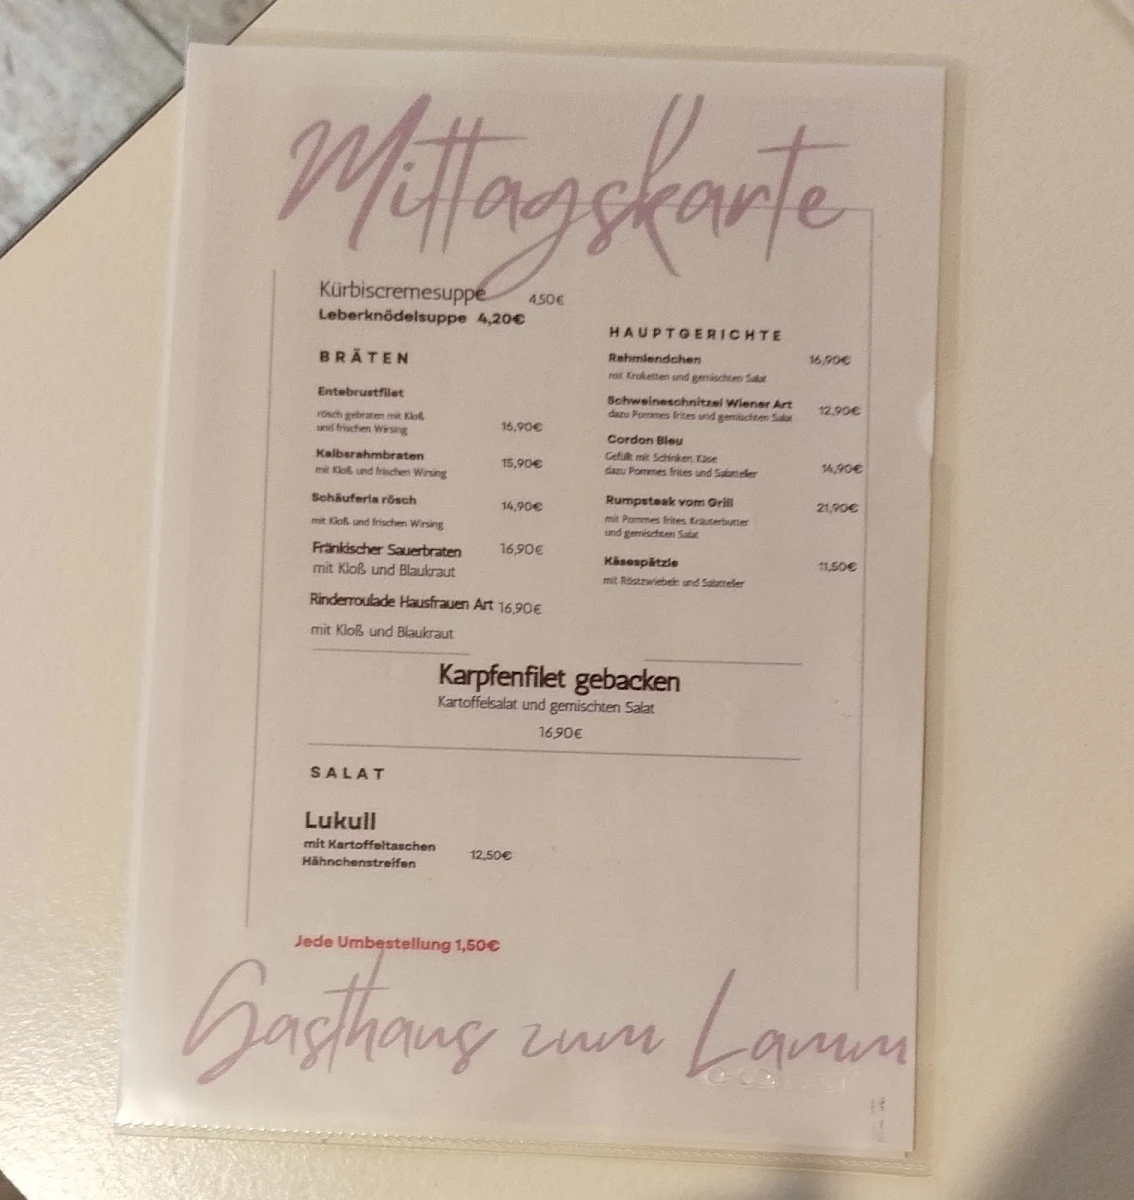 Mittagskarte
Kürbiscremesuppe 4,50€
Leberknödelsuppe 4,20€
BRÄTEN
Entebrustfilet
rösch gebraten mit Kloß
und frischen Wirsing 16,90€
Kalbsrahmbraten 15,90€
mit Kloß und frischen Wirsing
Schäuferla rösch 14,90€
mit Kloß und frischen Wirsing
Fränkischer Sauerbraten 16,90€
mit Kloß und Blaukraut
Rinderroulade Hausfrauen Art 16,90€
mit Kloß und Blaukraut
HAUPTGERICHTE
Rahmlendchen 16,90€
mit Kroketten und gemischten Salat
Schweineschnitzel Wiener Art 12,90€
dazu Pommes frites und gemischten Salat
Cordon Bleu
Gefüllt mit Schinken, Käse
dazu Pommes frites und Salatteller 14,90€
Rumpsteak vom Grill 21,90€
mit Pommes frites, Kräuterbutter
und gemischten Salat
Käsespätzle 11,50€
mit Röstzwiebeln und Salatteller
Karpfenfilet gebacken
Kartoffelsalat und gemischten Salat
16,90€
SALAT
Lukull
mit Kartoffeltaschen
Hähnchenstreifen 12,50€
Jede Umbestellung 1,50€
Gasthaus zum Lamm